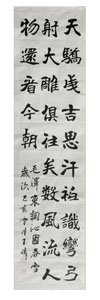 天驕成吉思汗祗識彎弓
射大雕俱往矣數風流人
物還看今朝
毛澤東詞沁園春雪
歲次己亥